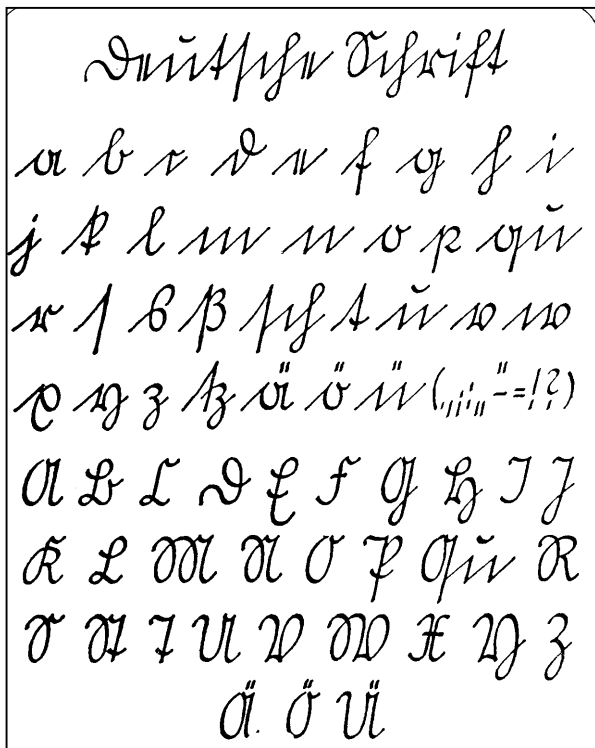 Deutſche Schrift
a b c d e f g h i
j k l m n o p qu
r ſ s ß ſch t u v w
x y z tz ä ö ü (.,;:„“-=!?)
A B C D E F G H I J
K L M N O P Qu R
S St T U V W X Y Z
Ä Ö Ü